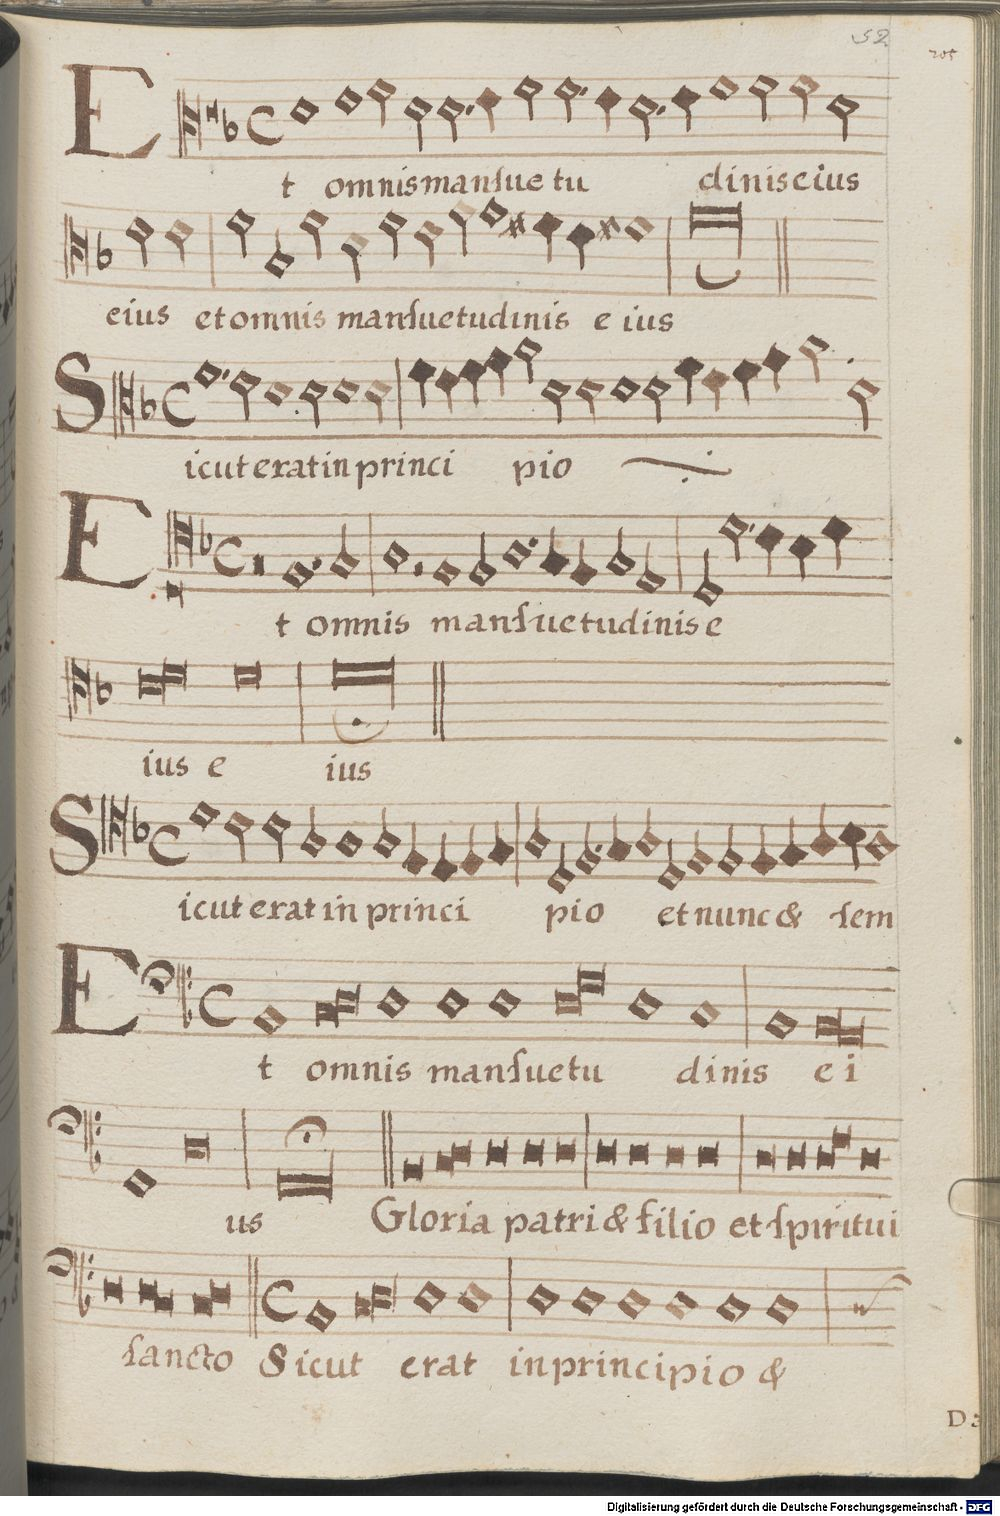 52
205
Et omnis mansuetu dinis eius
eius et omnis mansuetudinis e ius
Sicut erat in princi pio
Et omnis mansuetudinis e
ius e ius
Sicut erat in princi pio et nunc & sem
Et omnis mansuetu dinis e i
us Gloria patri & filio et spiritui
sancto Sicut erat in principio &
D
Digitalisierung gefördert durch die Deutsche Forschungsgemeinschaft - DFG